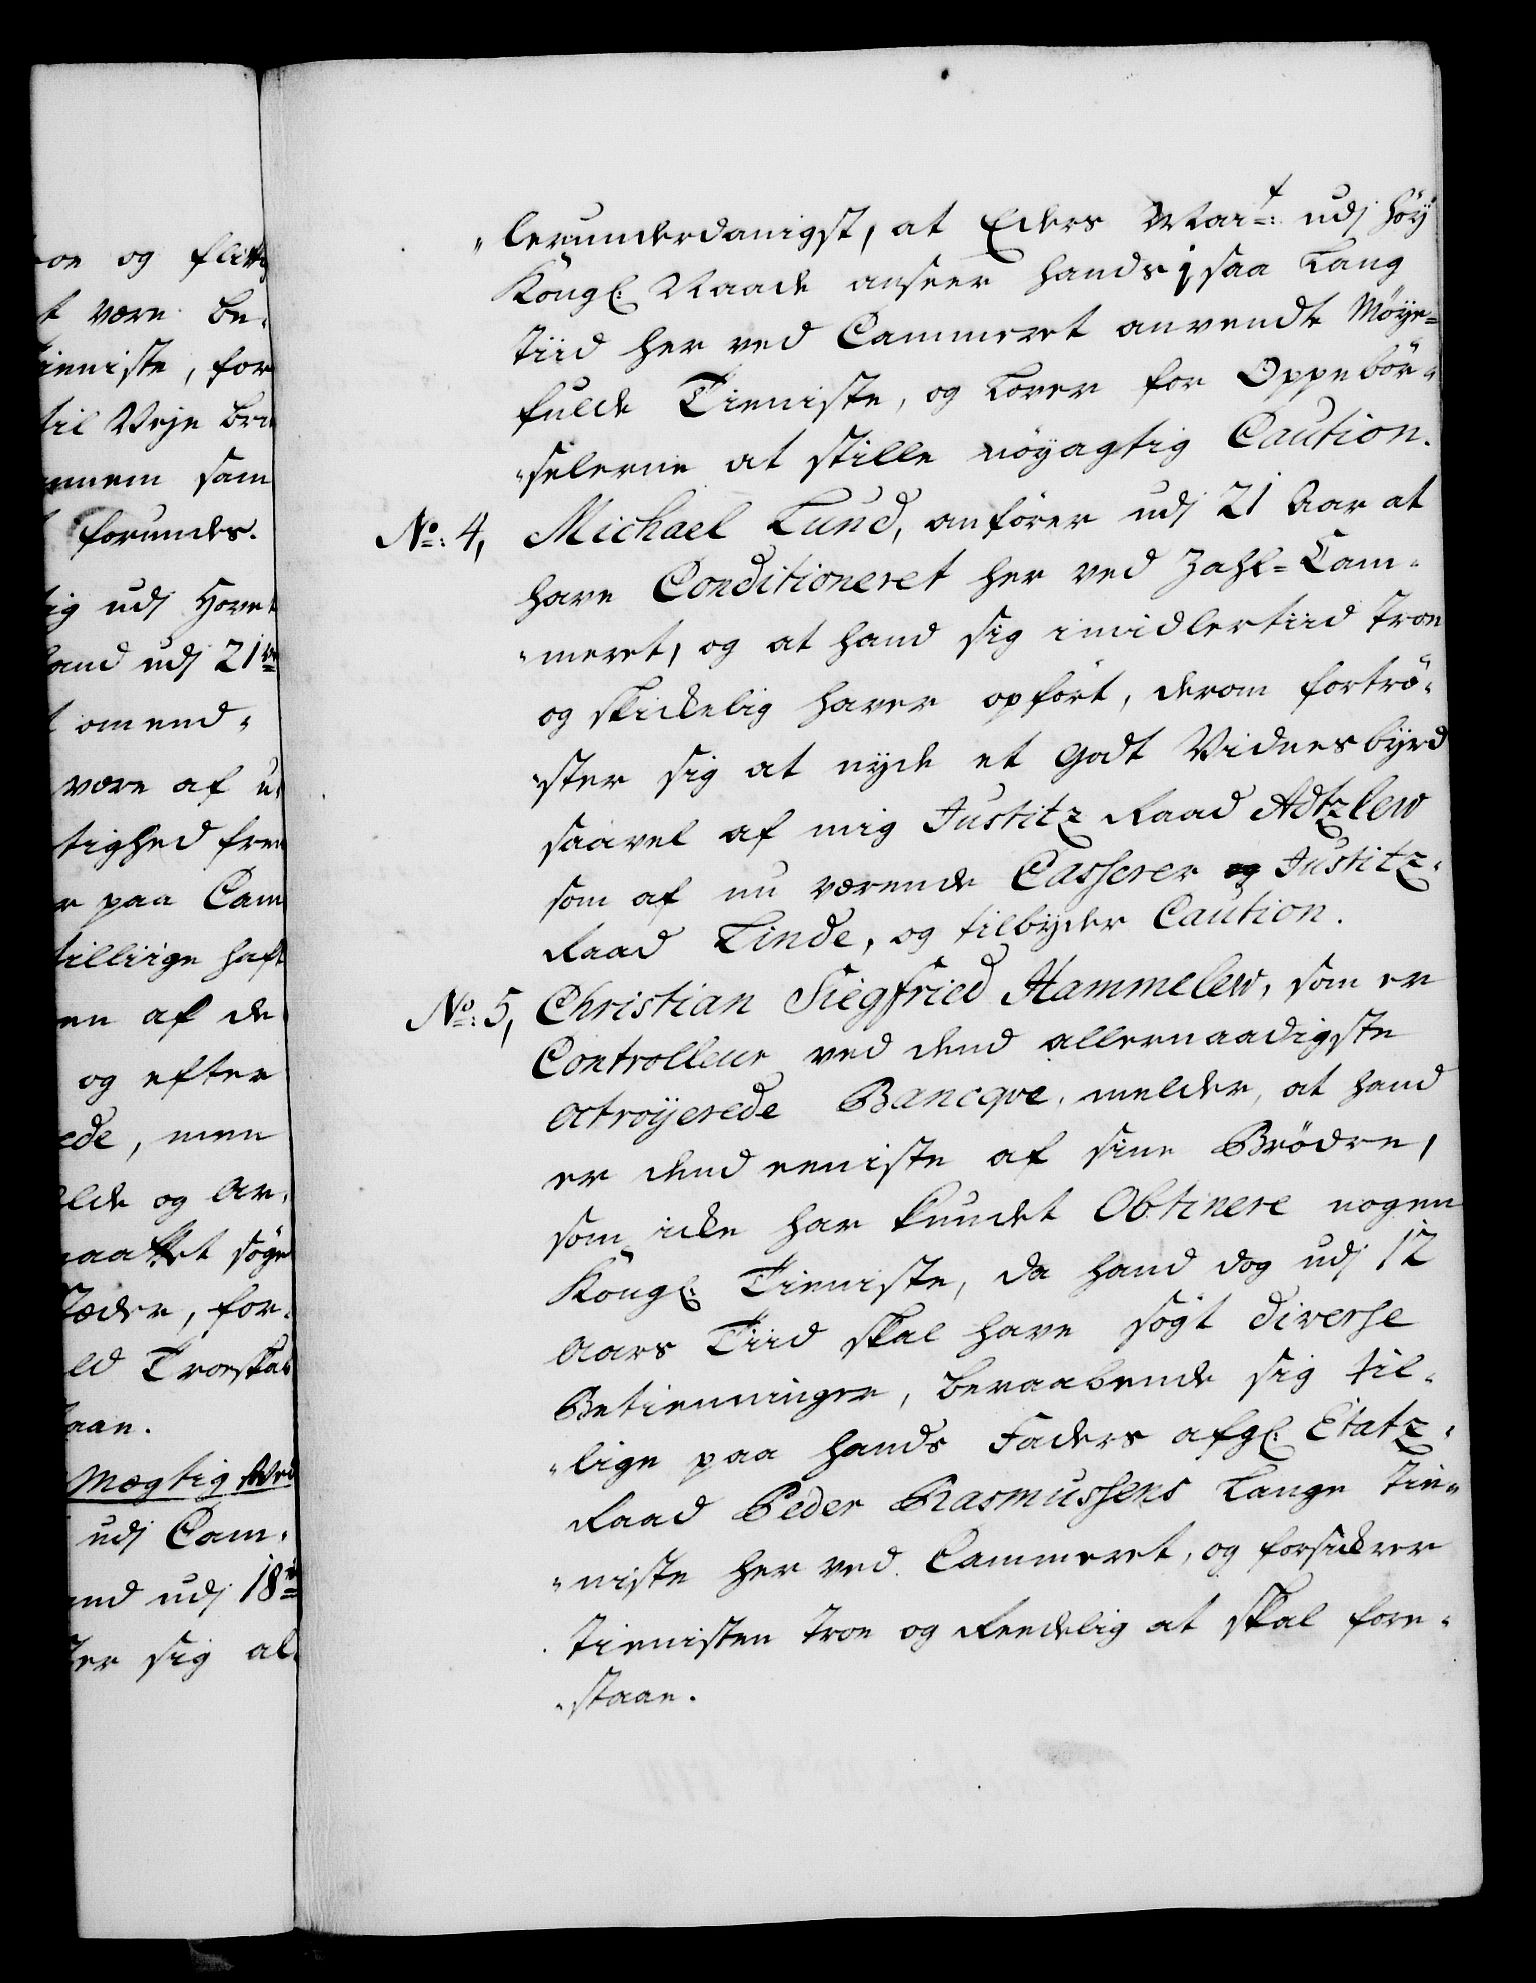 oe og flitt
t være be¬
ieniste, for
til Veje bri
annem sam
forundes.
tig udj Hoved
and udj 21
t omend¬
være af u
tighed frem
r paa Cam
tilliige haft
en af de
og efter
ede, men
lde og Ar¬
maattet søge
Tæder, for¬
ld Troeskab
taae.
Mægtig Ved
udj Cam¬
and udj 18
ter sig al¬
„lerunderdanigst, at Eders Mai:t udj høy
Kongl: Naade anseer hands i saa Lang
Tiid her ved Cammeret anvendte Møye=
fulde Tieniste, og Lover for Oppebør¬
„selerne at stille nøyagtig Caution.
No: 4, Michael Lund, anfører udj 21 Aar at
have Conditioneret her ved Zahl=Cam¬
„meret, og at hand sig imidlertiid Troe
og skickelig haver opført, derom fortrø¬
„ster sig at nyde et godt Vidnesbyrd
saavel af mig Justitz Raad Adtzlew
som af nu værende Casserer og Justitz¬
Raad Linde, og tilbyder Caution.
No: 5, Christian Siegfried Hammelew, som er
Controlleur ved dend allernaadigste
octroyerede Bancqve, melder, at hand
er dend eeniste af sine Brødre,
som icke har kundet Obtinere nogen
Kongl: Tieniste, da hand dog udj 12
Aars Tiid skal have søgt diverse
Betieninger, beraabende sig til¬
„lige paa hands Faders afgl: Etatz¬
Raad Peder Rasmussens Lange Tie¬
„niste her ved Cammeret, og forsickrer
Tienisten troe og Reedelig at skal fore¬
„staae.